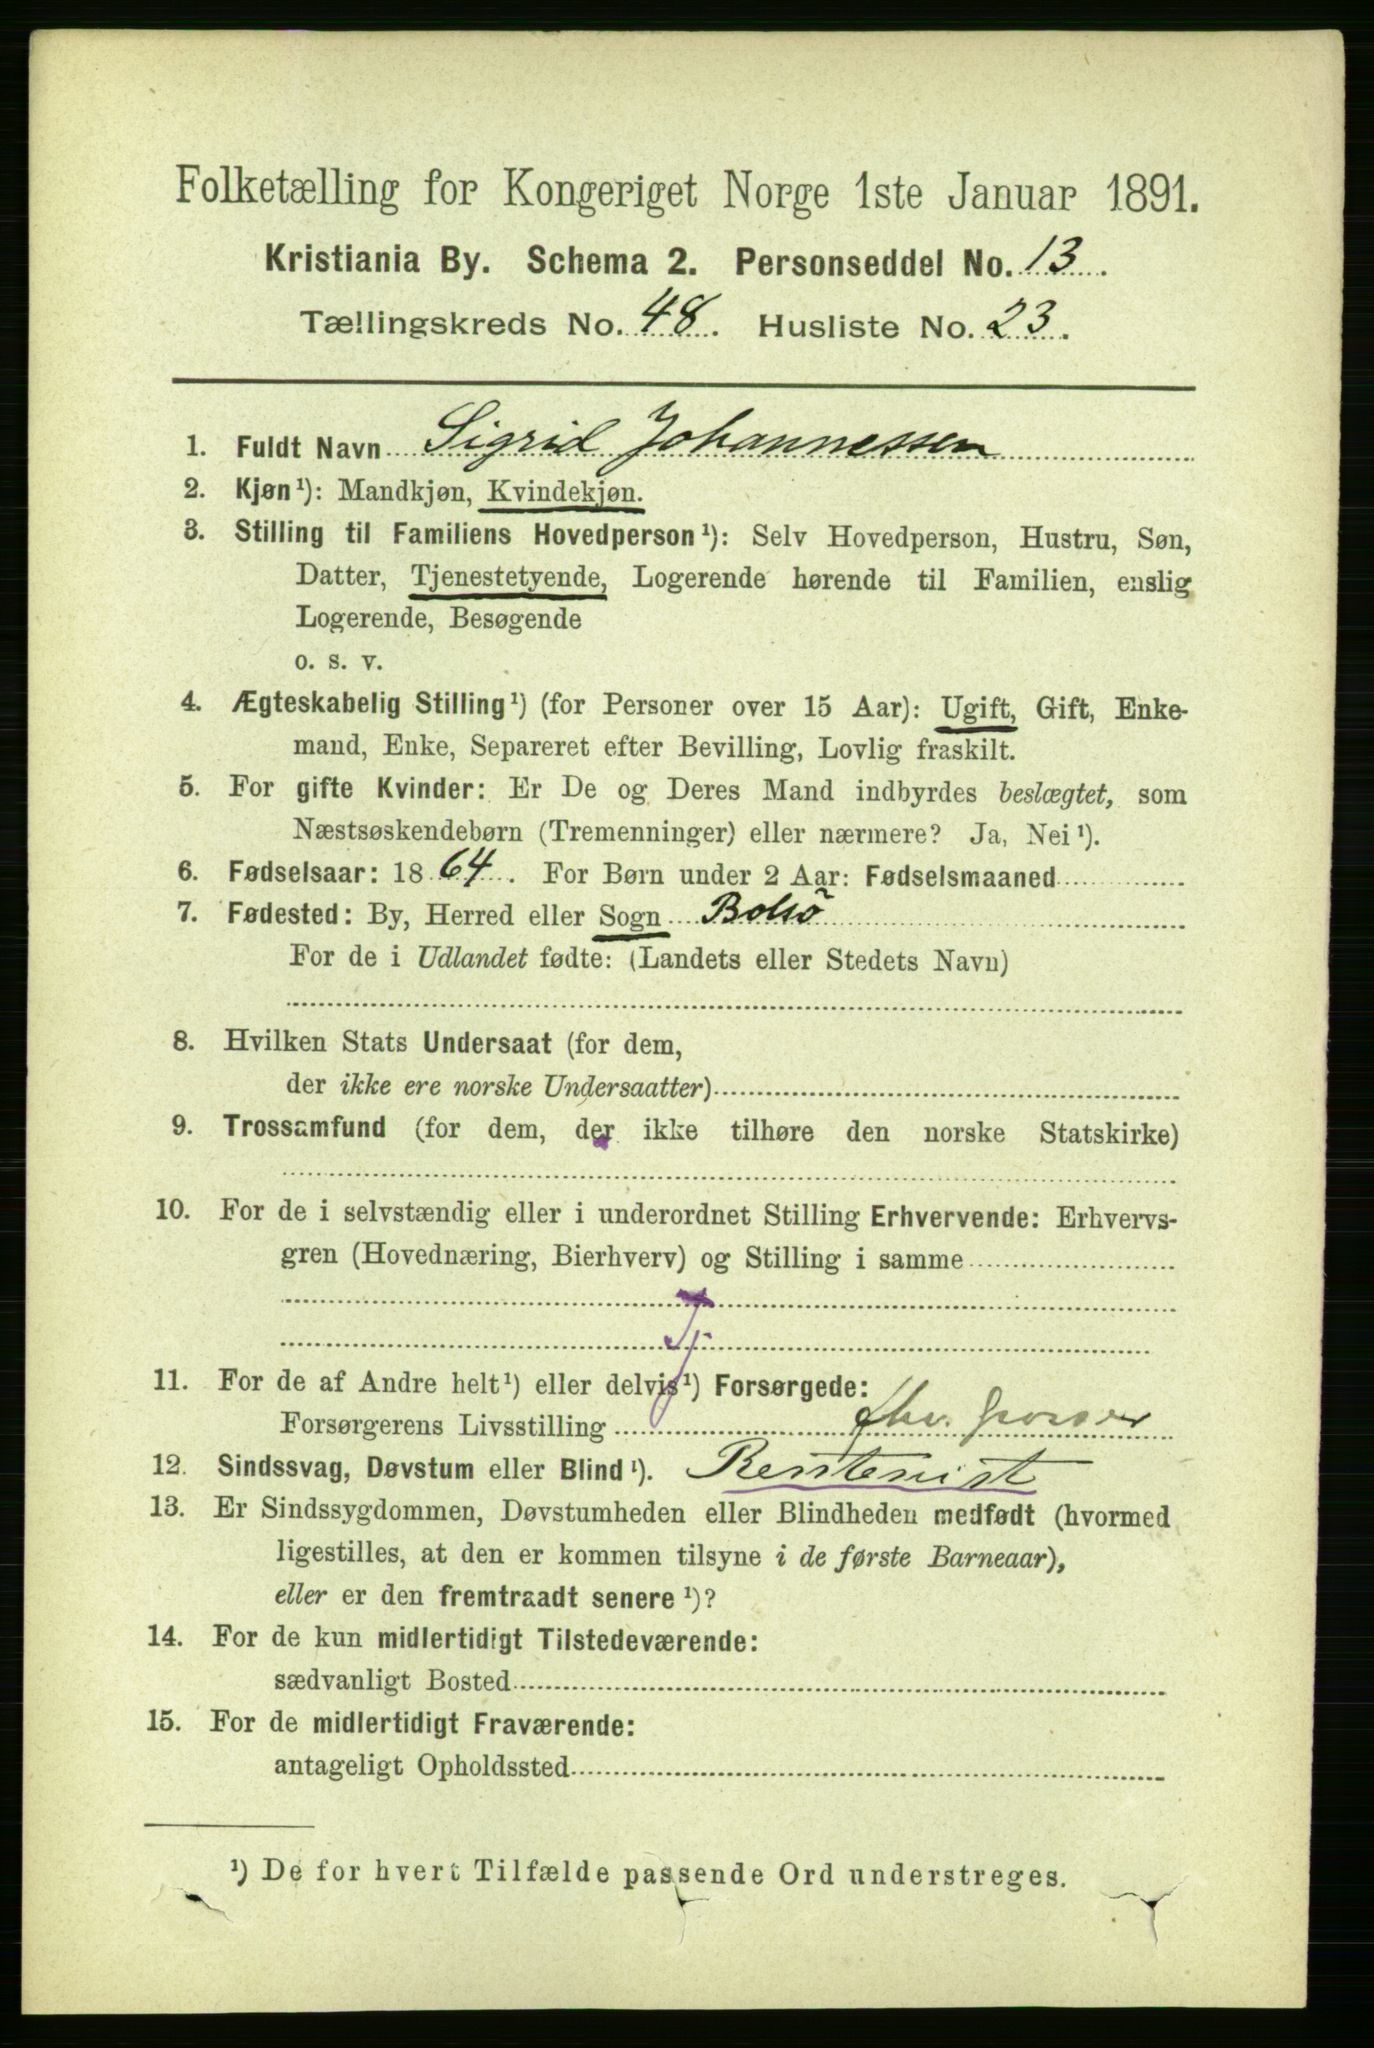 Folketælling for Kongeriget Norge 1ste Januar 1891.
Kristiania By. Schema 2. Personseddel No. 13.
Tællingskreds No. 48. Husliste No. 23.
1. Fuldt Navn Sigrid Johannessen
2. Kjøn¹): Mandkjøn, Kvindekjøn.
3. Stilling til Familiens Hovedperson¹): Selv Hovedperson, Hustru, Søn,
Datter, Tjenestetyende, Logerende hørende til Familien, enslig
Logerende, Besøgende
o. s. v.
4. Ægteskabelig Stilling¹) (for Personer over 15 Aar): Ugift, Gift, Enke-
mand, Enke, Separeret efter Bevilling, Lovlig fraskilt.
5. For gifte Kvinder: Er De og Deres Mand indbyrdes beslægtet, som
Næstsøskendebørn (Tremenninger) eller nærmere? Ja, Nei¹).
6. Fødselsaar: 1864. For Børn under 2 Aar: Fødselsmaaned
7. Fødested: By, Herred eller Sogn Bolsö
For de i Udlandet fødte: (Landets eller Stedets Navn)
8. Hvilken Stats Undersaat (for dem,
der ikke ere norske Undersaatter)
9. Trossamfund (for dem, der ikke tilhøre den norske Statskirke)
10. For de i selvstændig eller i underordnet Stilling Erhvervende: Erhvervs-
gren (Hovednæring, Bierhverv) og Stilling i samme
11. For de af Andre helt¹) eller delvis¹) Forsørgede:
Forsørgerens Livsstilling
12. Sindssvag, Døvstum eller Blind¹). Rentenist
13. Er Sindssygdommen, Døvstumheden eller Blindheden medfødt (hvormed
ligestilles, at den er kommen tilsyne i de første Barneaar),
eller er den fremtraadt senere¹)?
14. For de kun midlertidigt Tilstedeværende:
sædvanligt Bosted
15. For de midlertidigt Fraværende:
antageligt Opholdssted
¹) De for hvert Tilfælde passende Ord understreges.